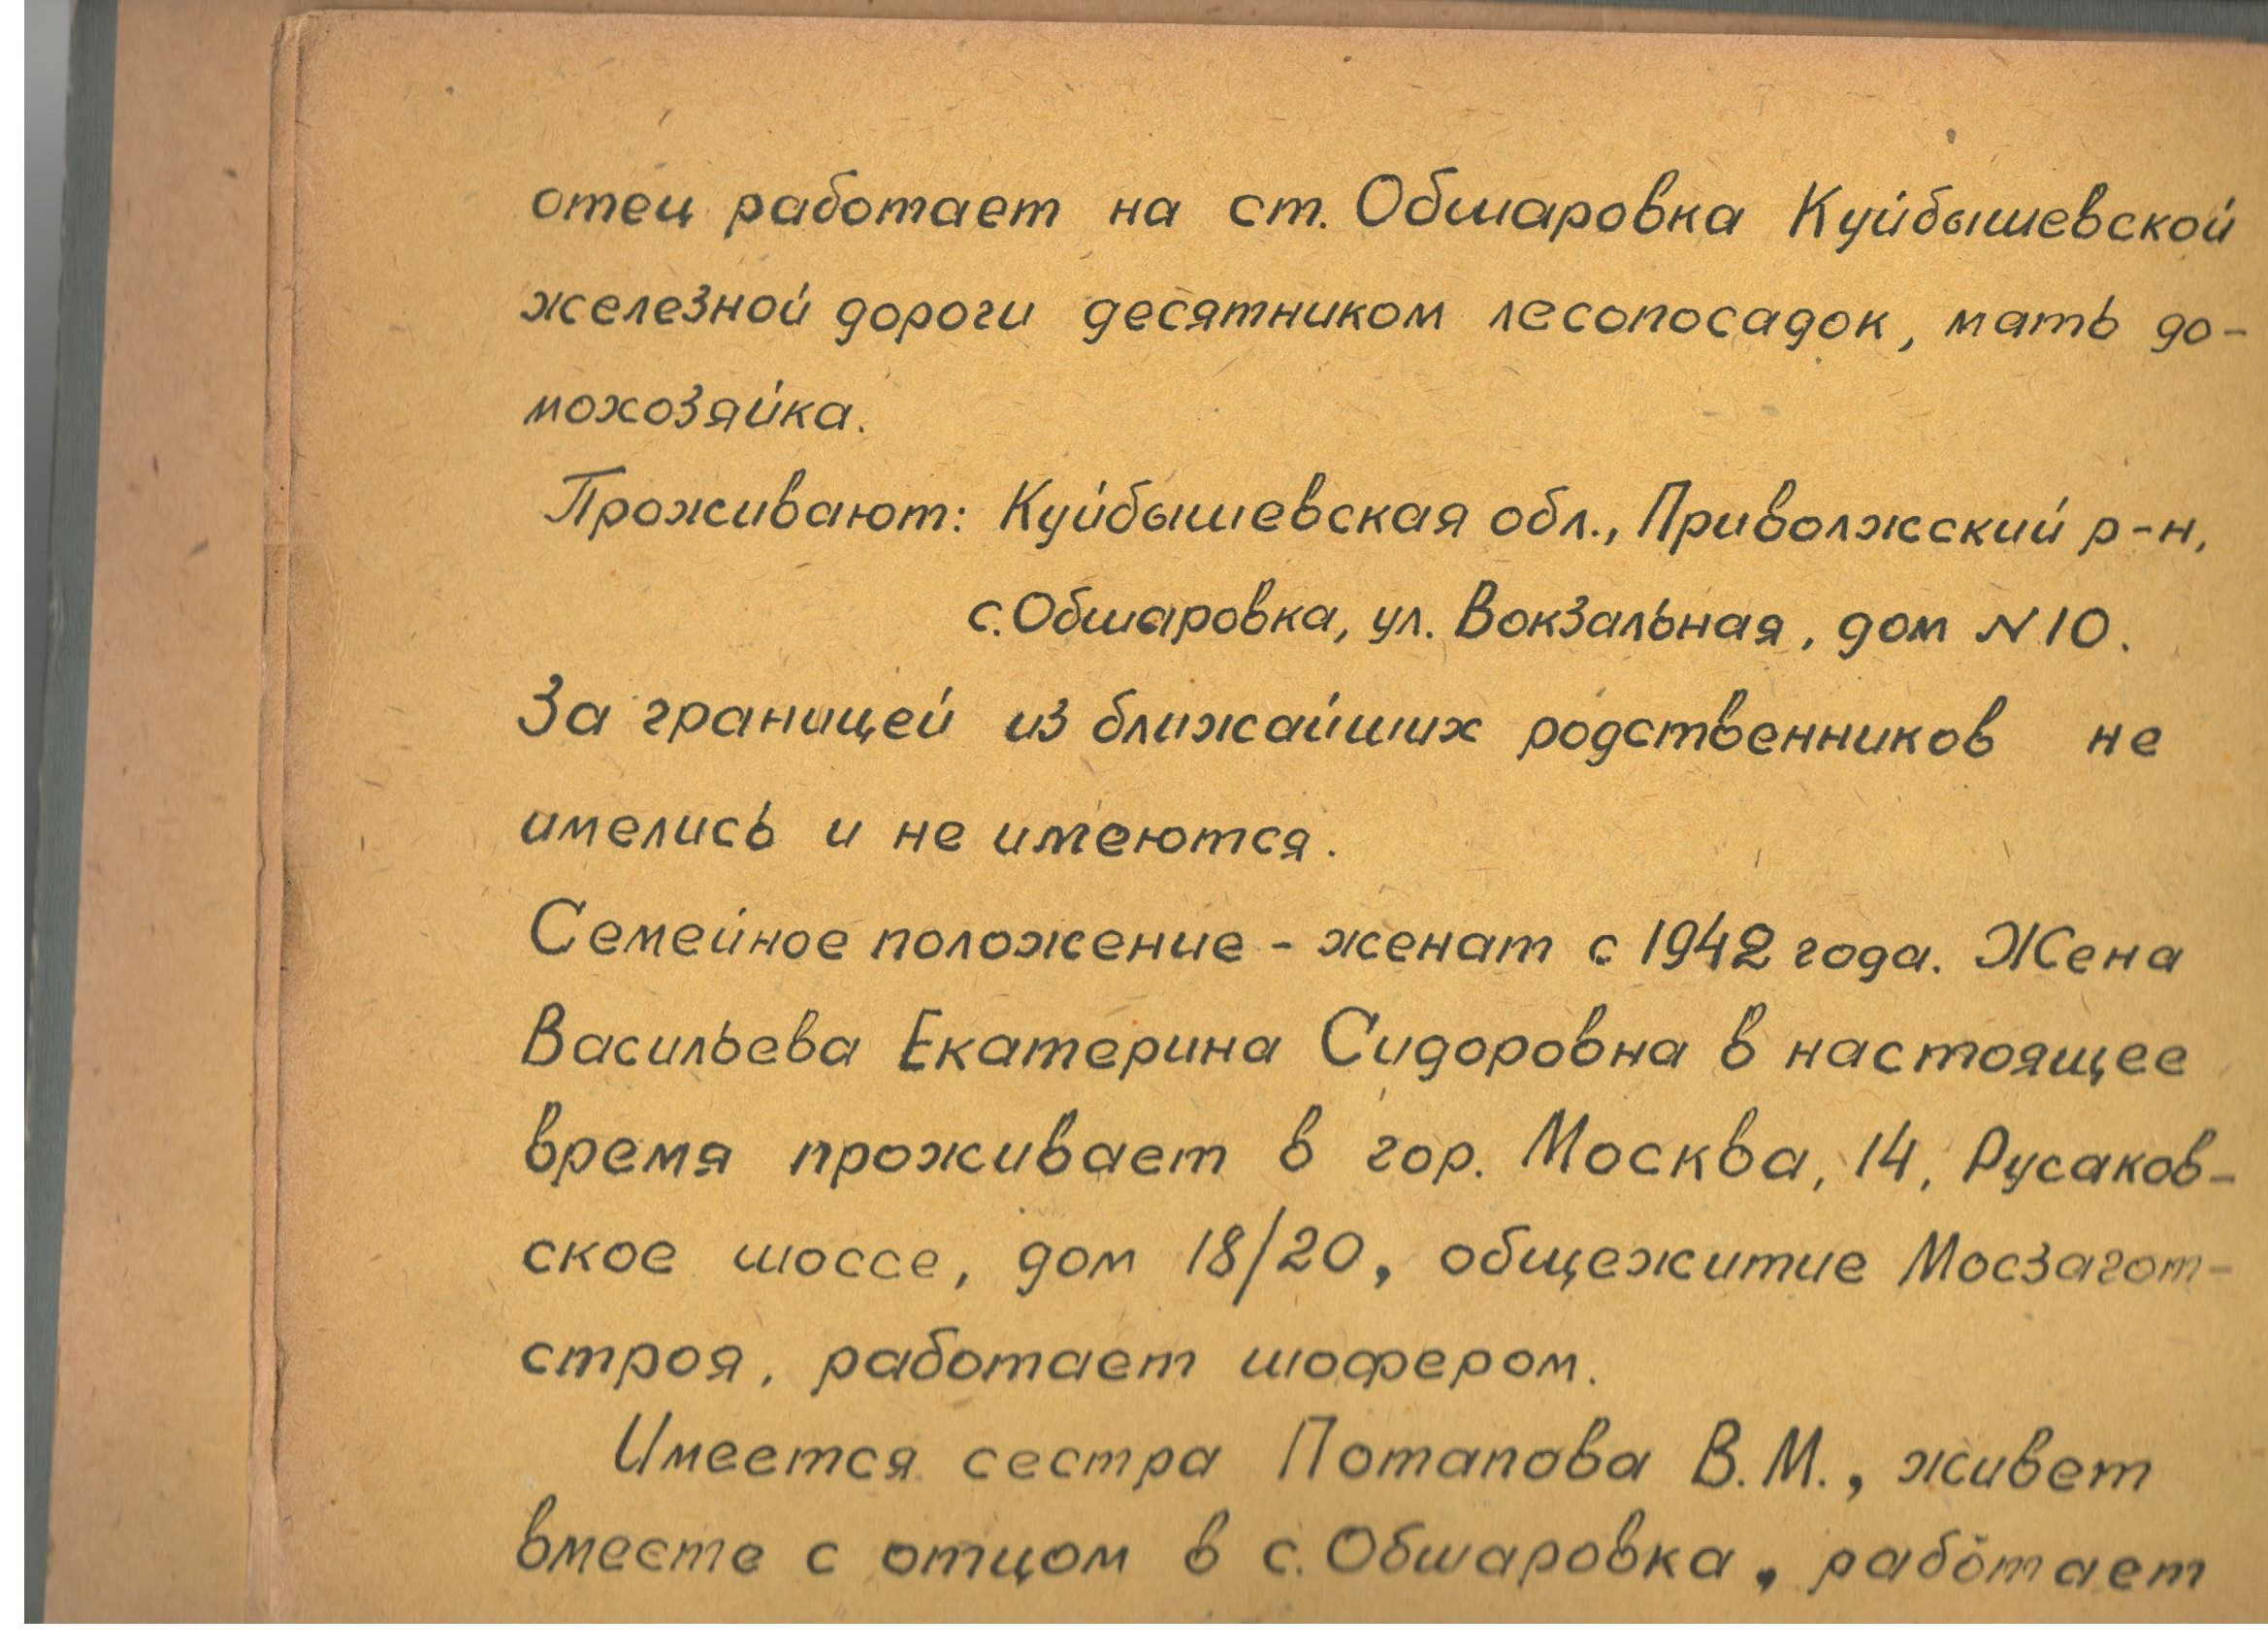 отец работает на ст. Обшаровка Куйбышевской
железной дороги десятником лесопосадок, мать до-
мохозяйка.
Проживают: Куйбышевская обл., Приволжский р-н,
с. Обшаровка, ул. Вокзальная, дом №10.
За границей из ближайших родственников не
имелись и не имеются.
Семейное положение - женат с 1942 года. Жена
Васильева Екатерина Сидоровна в настоящее
время проживает в гор. Москва, 14, Русаков-
ское шоссе, дом 18/20, общежитие Мосзагот-
строя, работает шофером.
Имеется сестра Потапова В.М., живет
вместе с отцом в с. Обшаровка, работает